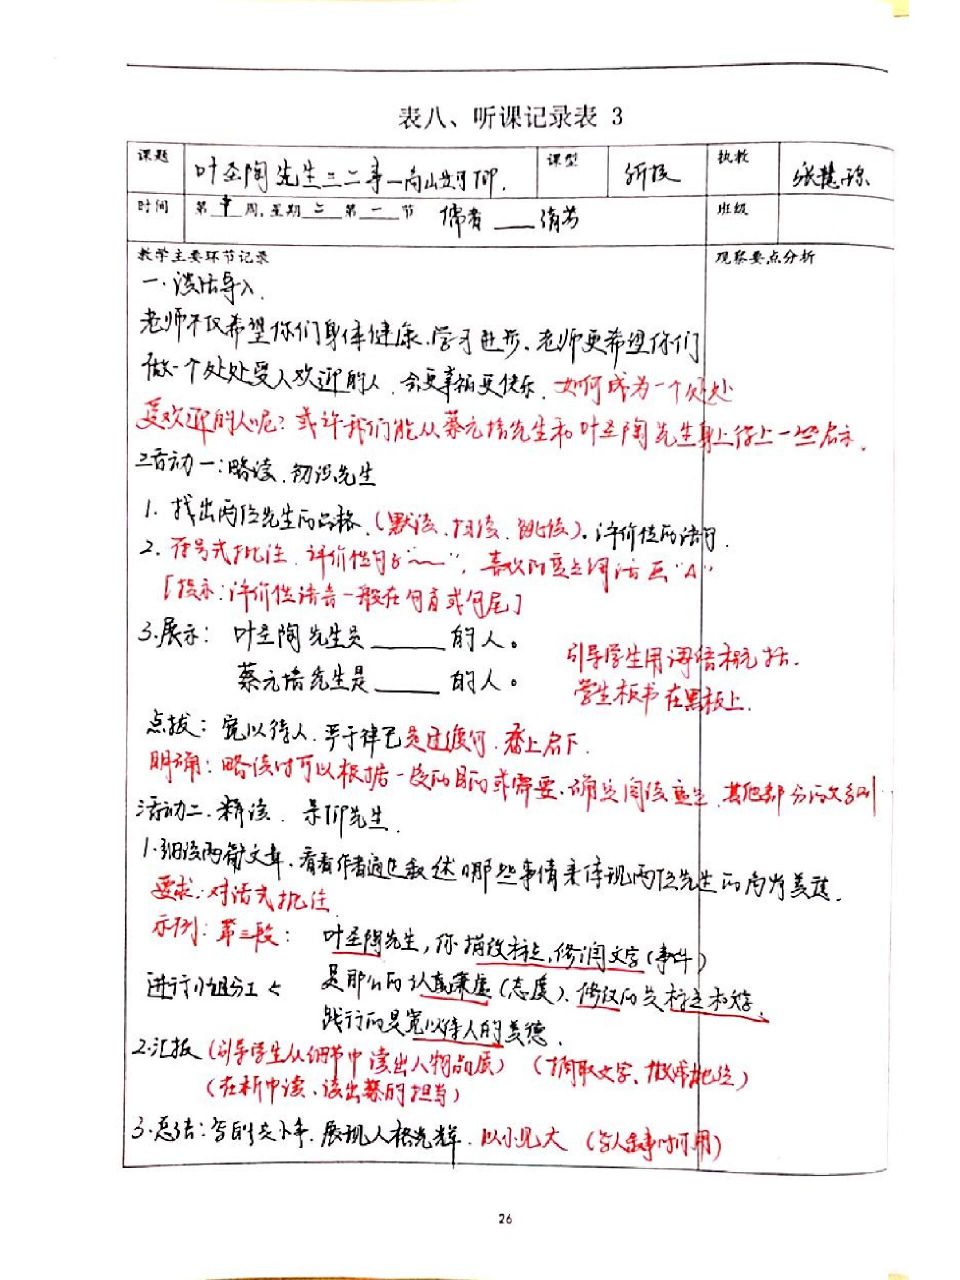 表八、听课记录表 3
课题 叶圣陶先生二三事—高山 课型 新授 执教 张慧
时间 第 周,星期二第一节 儒者 清芳 班级
教学主要环节记录 观察要点分析
一.谈话导入.
老师不仅希望你们身体健康、学习进步,老师更希望你们
做一个处处受人欢迎的人,会更幸福更快乐.如何成为一个处处
受欢迎的人呢?或许我们能从蔡元培先生和叶圣陶先生身上得上一些启示.
二活动一:略读、初识先生
1. 找出两位先生的品格.(默读、扫读、跳读).评价性的语句.
2. 符号式批注.评价性句子"﹏",喜欢的 词语画"△"
[提示:评价性语言一般在句首或句尾]
3.展示: 叶圣陶先生是______的人。
引导学生用词语概括.
蔡元培先生是______的人。
学生板书在黑板上.
点拔:宽以待人.严于律己是过度句.承上启下.
明确:略读时可以根据一定的目的或需要,确定阅读重点,其他部分
活动二.精读.景仰先生.
1.细读两篇文章,看看作者通过叙述哪些事情来体现两位先生的高尚美德.
要求:对话式批注
示例:第三段: 叶圣陶先生,你描改标点,修润文字(事件)
进行小组分工 是那么的认真谦虚(态度)、修改的是标点和文字,
践行的是宽以待人的美德.
2.汇报(引导学生从细节中读出人物品质)(摘取文字、做旁批注)
(在析中读、读出蔡的担当)
3.总结:写的是小事,展现人格光辉.以小见大(写人叙事时可用)
26